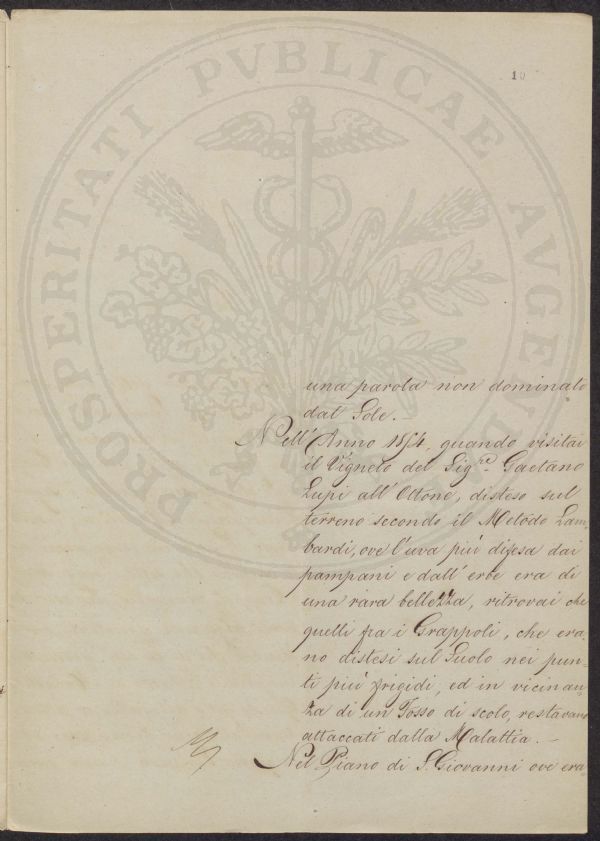 10
una parola non dominato
dal Sole.
Nell'Anno 1854, quando visitai
il Vigneto del Sig.re Gaetano
Lupi all'Ottone, disteso sul
terreno secondo il Metodo Lam,
bardi, ove l'uva più difesa dai
pampani e dall'erbe era di
una rara bellezza, ritrovai che
quelli fra i Grappoli, che era,
no distesi sul Suolo nei pun,
ti più frigidi, ed in vicinan,
za di un Fosso di scolo, restavano
attaccati dalla Malattia. —
Nel Piano di S. Giovanni ove era,
PROSPERITATI PVBLICAE AVGENDAE